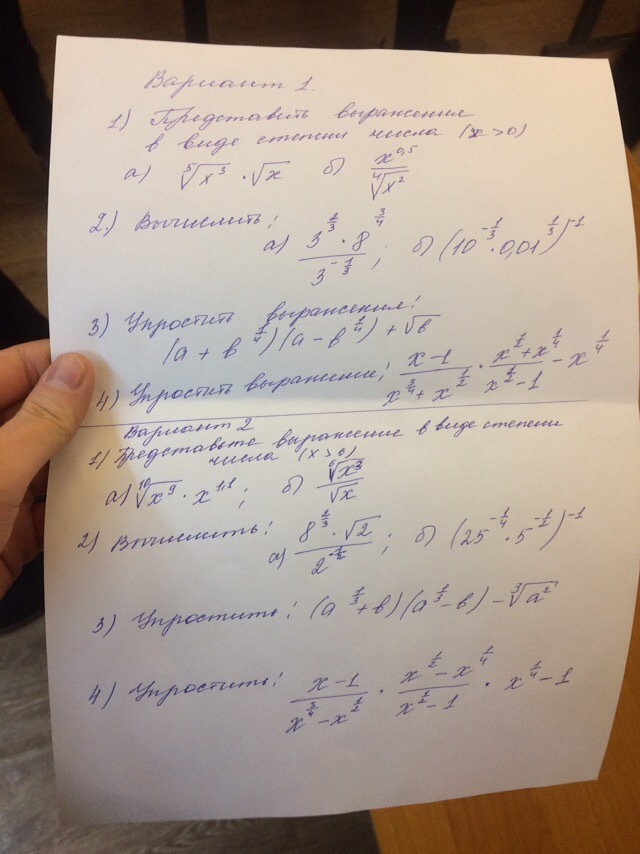 Вариант 1.
1) Представить выражения
в виде степени числа (x > 0)
а) ⁵√x³ · √x б) x^0,5 / ⁴√x²
2.) Вычислить:
а) 3^(2/3) · 8^(3/4) / 3^(-1/3); б) (10^(-1/3) · 0,01^(1/3))^(-1)
3) Упростить выражения:
(a + b^(1/4))(a - b^(1/4)) + √b
4) Упростить выражение: (x-1)/(x^(3/4) + x^(1/2)) · (x^(1/2) + x^(1/4))/(x^(1/2) - 1) - x^(1/4)
Вариант 2
1) Представьте выражение в виде степени
числа (x > 0)
а) ¹⁰√x⁹ · x^1,1; б) ⁶√x³ / √x
2) Вычислить:
а) 8^(2/3) · √2 / 2^(-1/2); б) (25^(-1/4) · 5^(-1/2))^(-1)
3) Упростить: (a^(1/3) + b)(a^(1/3) - b) - ³√a²
4) Упростить: (x-1)/(x^(3/4) - x^(1/2)) · (x^(1/2) - x^(1/4))/(x^(1/2) - 1) · x^(1/4) - 1